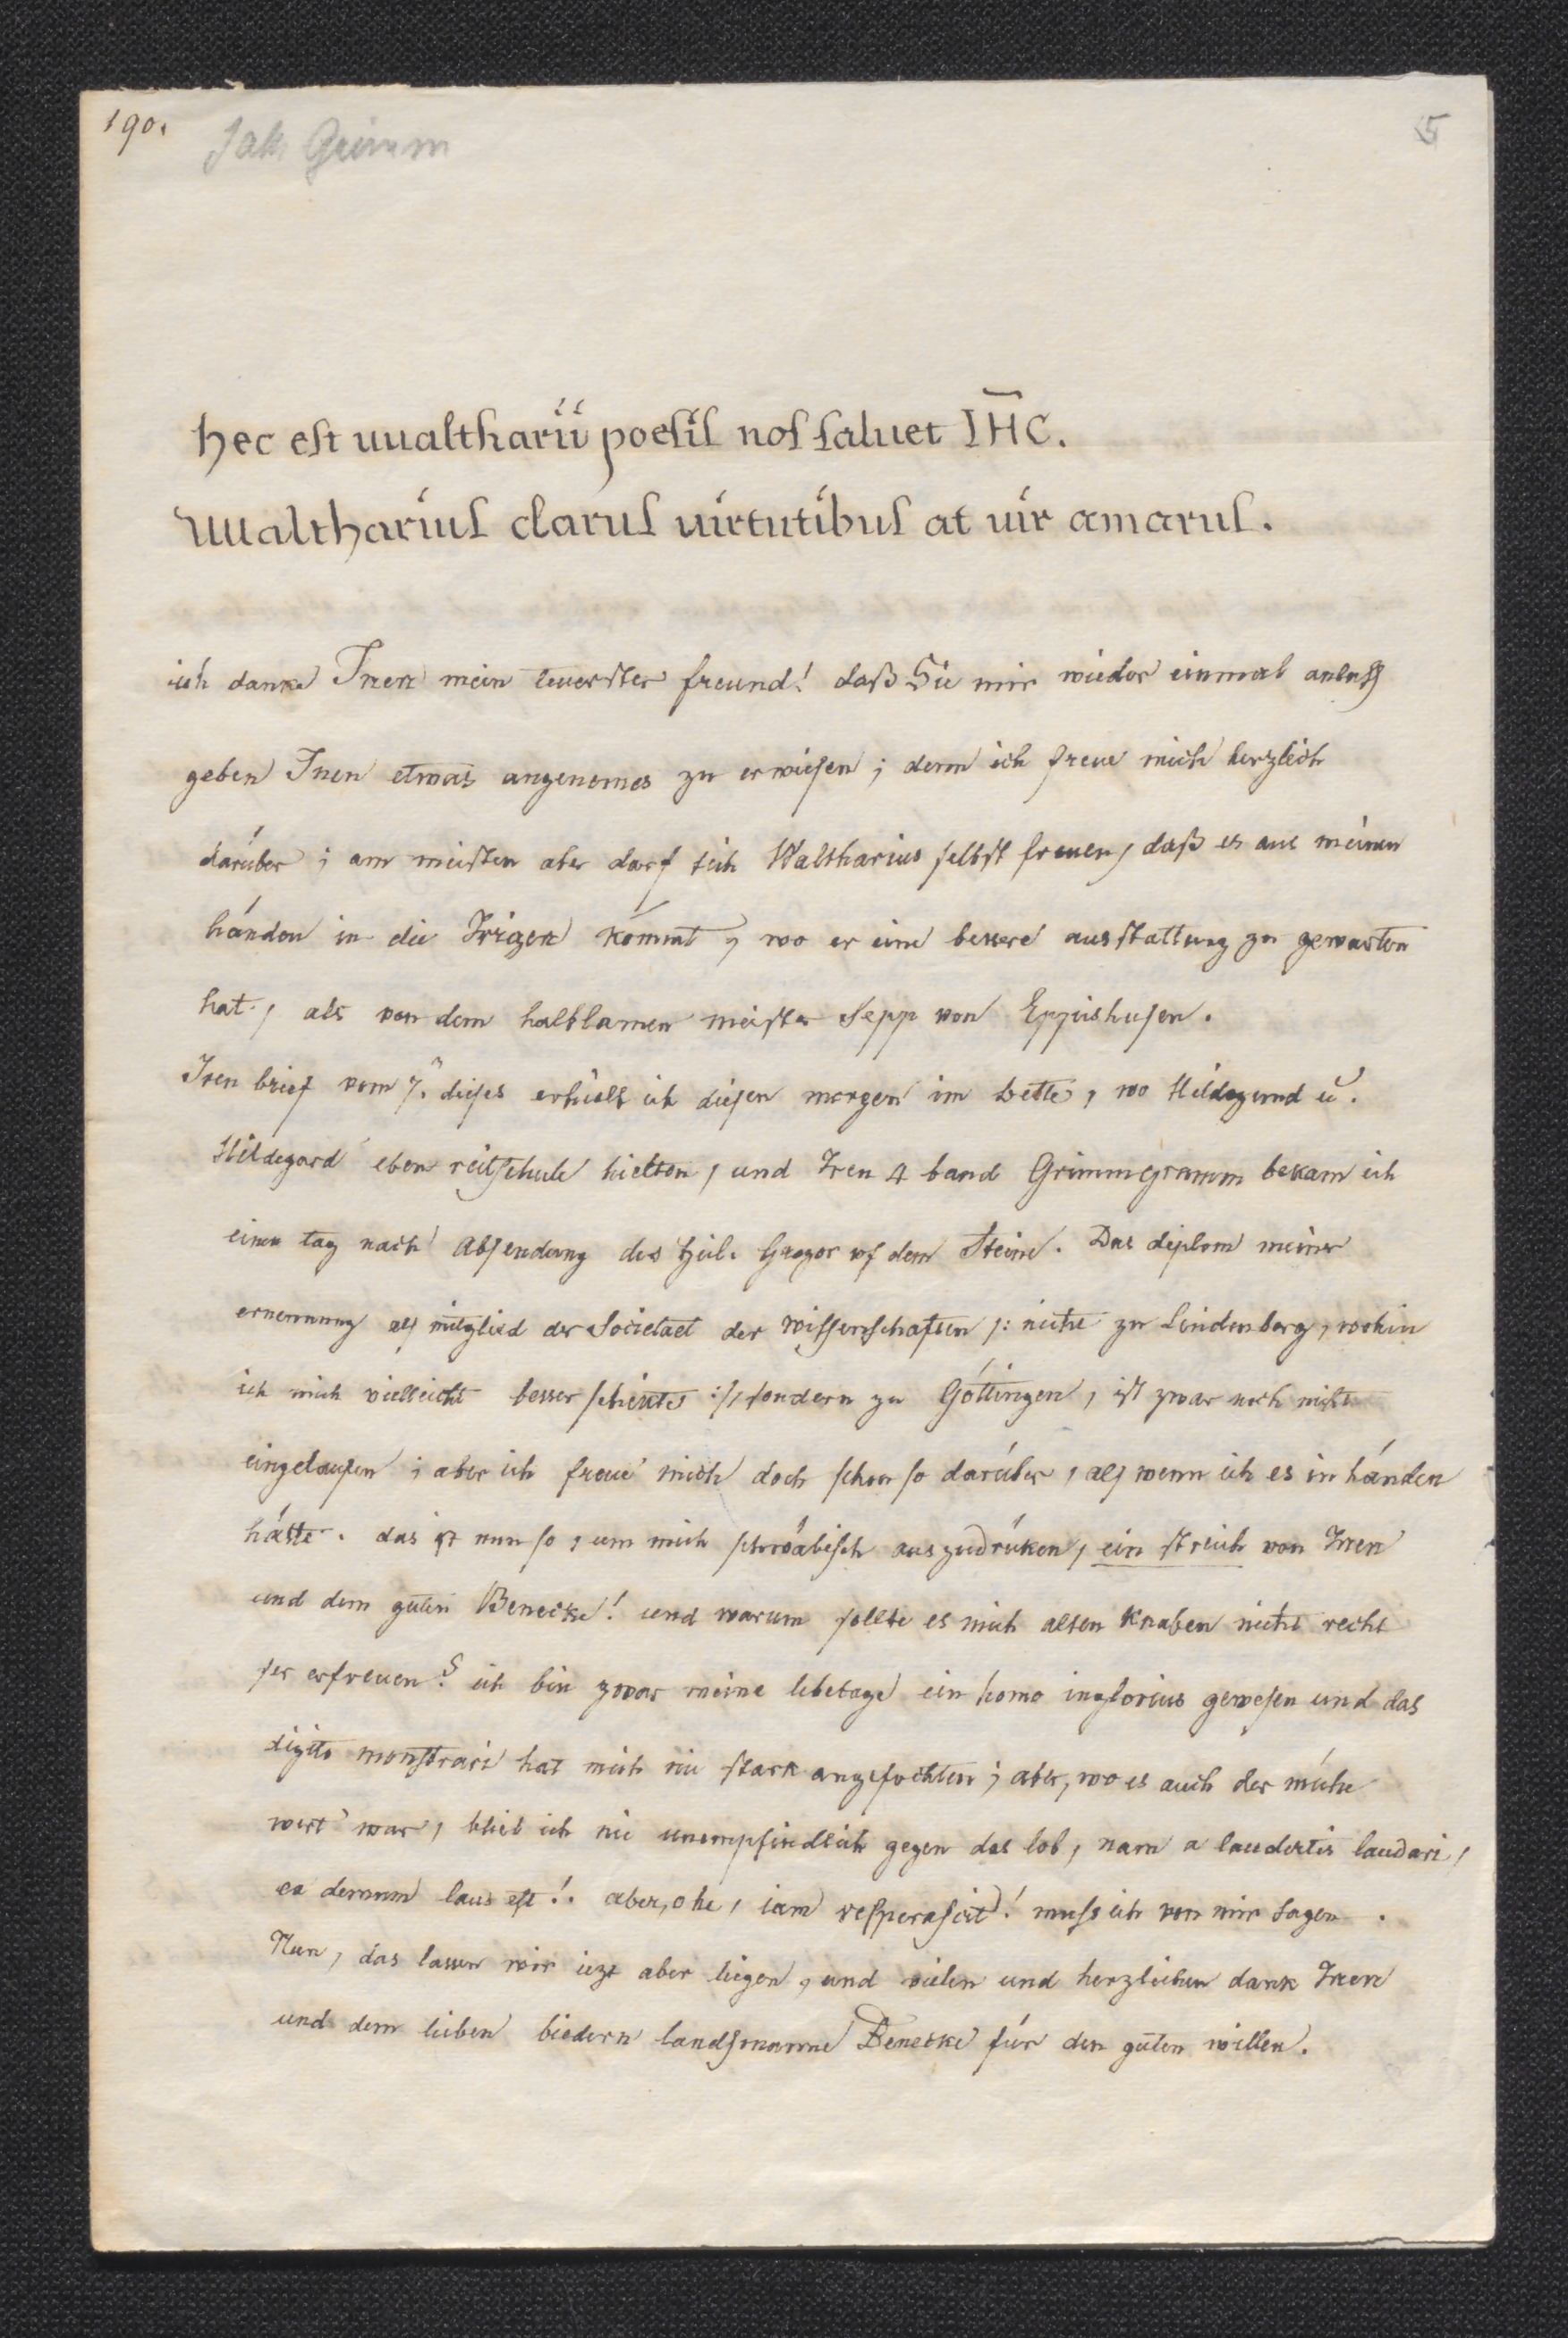 190.
Jak Grimm
5
hec eſt uualtharii poeſiſ noſ ſaluet IH̅C.
Uualthariuſ claruſ uirtutibuſ at uir amaruſ.
ich danke Inen mein teuerster freund! daß Sie mir wieder einmal anlaß
geben Inen etwas angenemes zu erweiſen; denn ich freue mich herzlich
darúber; am meisten aber darf sich Waltharius ſelbst freuen, daß er aus meinen
hánden in die Irigen kómmt, wo er eine bessere ausstattung zu gewarten
hat, als von dem halblamen meister Sepp von Eppishuſen.
Iren brief vom 7. dieſes erhielt ich dieſen morgen im bette, wo Hildegund u.
Hildegard eben reitſchule hielten, und Iren 4 band Grimmgramm bekam ich
einen tag nach abſendung des heil. Gregor uf dem Steine. Das diplom meiner
ernennung alſ mitglied der Societaet der wiſſenſchaften /: nicht zu Lindenberg, wohin
ich mich vielleicht besser ſchickte :/, sondern zu Góttingen, iſt zwar noch nicht
eingelaufen; aber ich freue mich doch ſchon ſo darúber, alſ wenn ich es in hánden
hátte. das iſt nun ſo, um mich ſchwábiſch auszudrúken, ein streich von Inen
und dem guten Benecke! und warum ſollte es mich alten knaben nicht recht
ſer erfreuen? ich bin zwar meine lebetage ein homo inglorius geweſen und das
digito monſtrari hat mich nie stark angefochten; aber, wo es auch der múhe
wert war, blieb ich nie unempfindlich gegen das lob, nam a laudatis laudari,
ea demum laus eſt!. aber, ohe, iam veſperaſcit! muſs ich von mir sagen.
Nun, das lassen wir iezt aber liegen, und vielen und herzlichen dank Inen
und dem lieben biedern landſmanne Benecke fúr den guten willen.